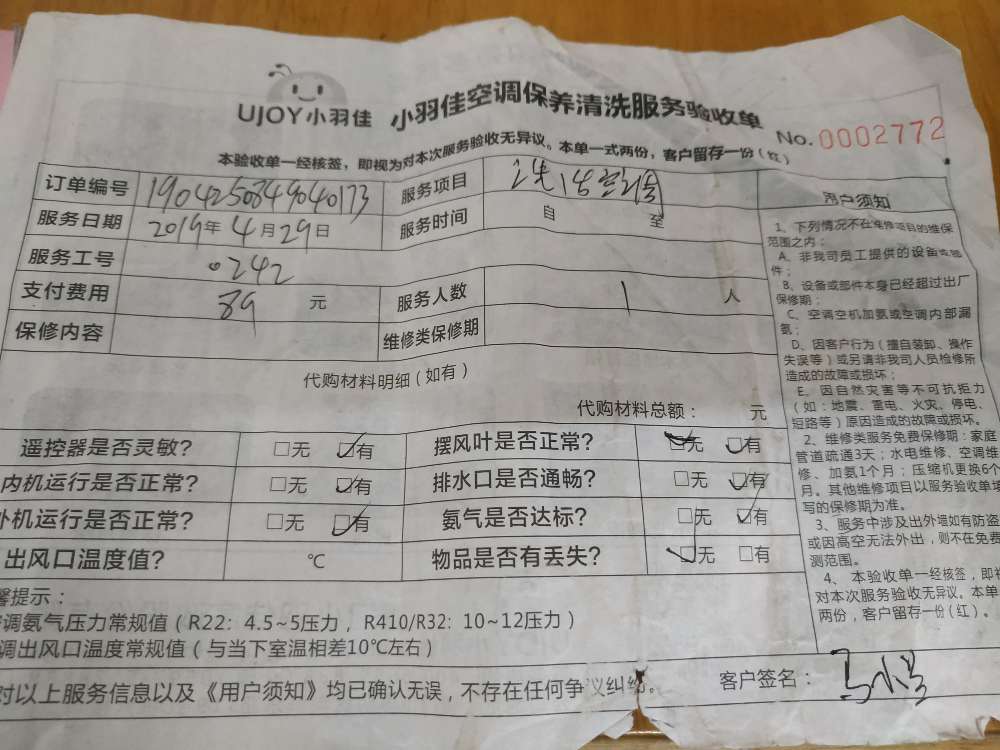 UJOY小羽佳 小羽佳空调保养清洗服务验收单
No. 0002772
本验收单一经核签，即视为对本次服务验收无异议。本单一式两份，客户留存一份（红）
订单编号 1904250849040173 服务项目 清洗空调
服务日期 2019年4月29日 服务时间 自 至
服务工号 0242
支付费用 89 元 服务人数 1 人
保修内容 维修类保修期
代购材料明细（如有）
代购材料总额： 元
遥控器是否灵敏? □无 □有 摆风叶是否正常? □无 □有
内机运行是否正常? □无 □有 排水口是否通畅? □无 □有
外机运行是否正常? □无 □有 氨气是否达标? □无 □有
出风口温度值? ℃ 物品是否有丢失? □无 □有
馨提示：
调氨气压力常规值（R22：4.5~5压力，R410/R32：10~12压力）
调出风口温度常规值（与当下室温相差10℃左右）
对以上服务信息以及《用户须知》均已确认无误，不存在任何争议纠纷。 客户签名：
用户须知
1、下列情况不在维修项目的维保
范围之内：
A、非我司员工提供的设备或部
件；
B、设备或部件本身已经超过出厂
保修期；
C、空调空机加氨或空调内部漏
氨；
D、因客户行为（擅自装卸、操作
失误等）或另请非我司人员检修所
造成的故障或损坏；
E、因自然灾害等不可抗拒力
（如：地震、雷电、火灾、停电、
短路等）原因造成的故障或损坏。
2、维修类服务免费保修期：家庭
管道疏通3天；水电维修、空调维
修、加氨1个月；压缩机更换6个
月。其他维修项目以服务验收单填
写的保修期为准。
3、服务中涉及出外墙如有防盗
或因高空无法外出，则不在免费
测范围。
4、本验收单一经核签，即视
对本次服务验收无异议。本单
两份，客户留存一份（红）。